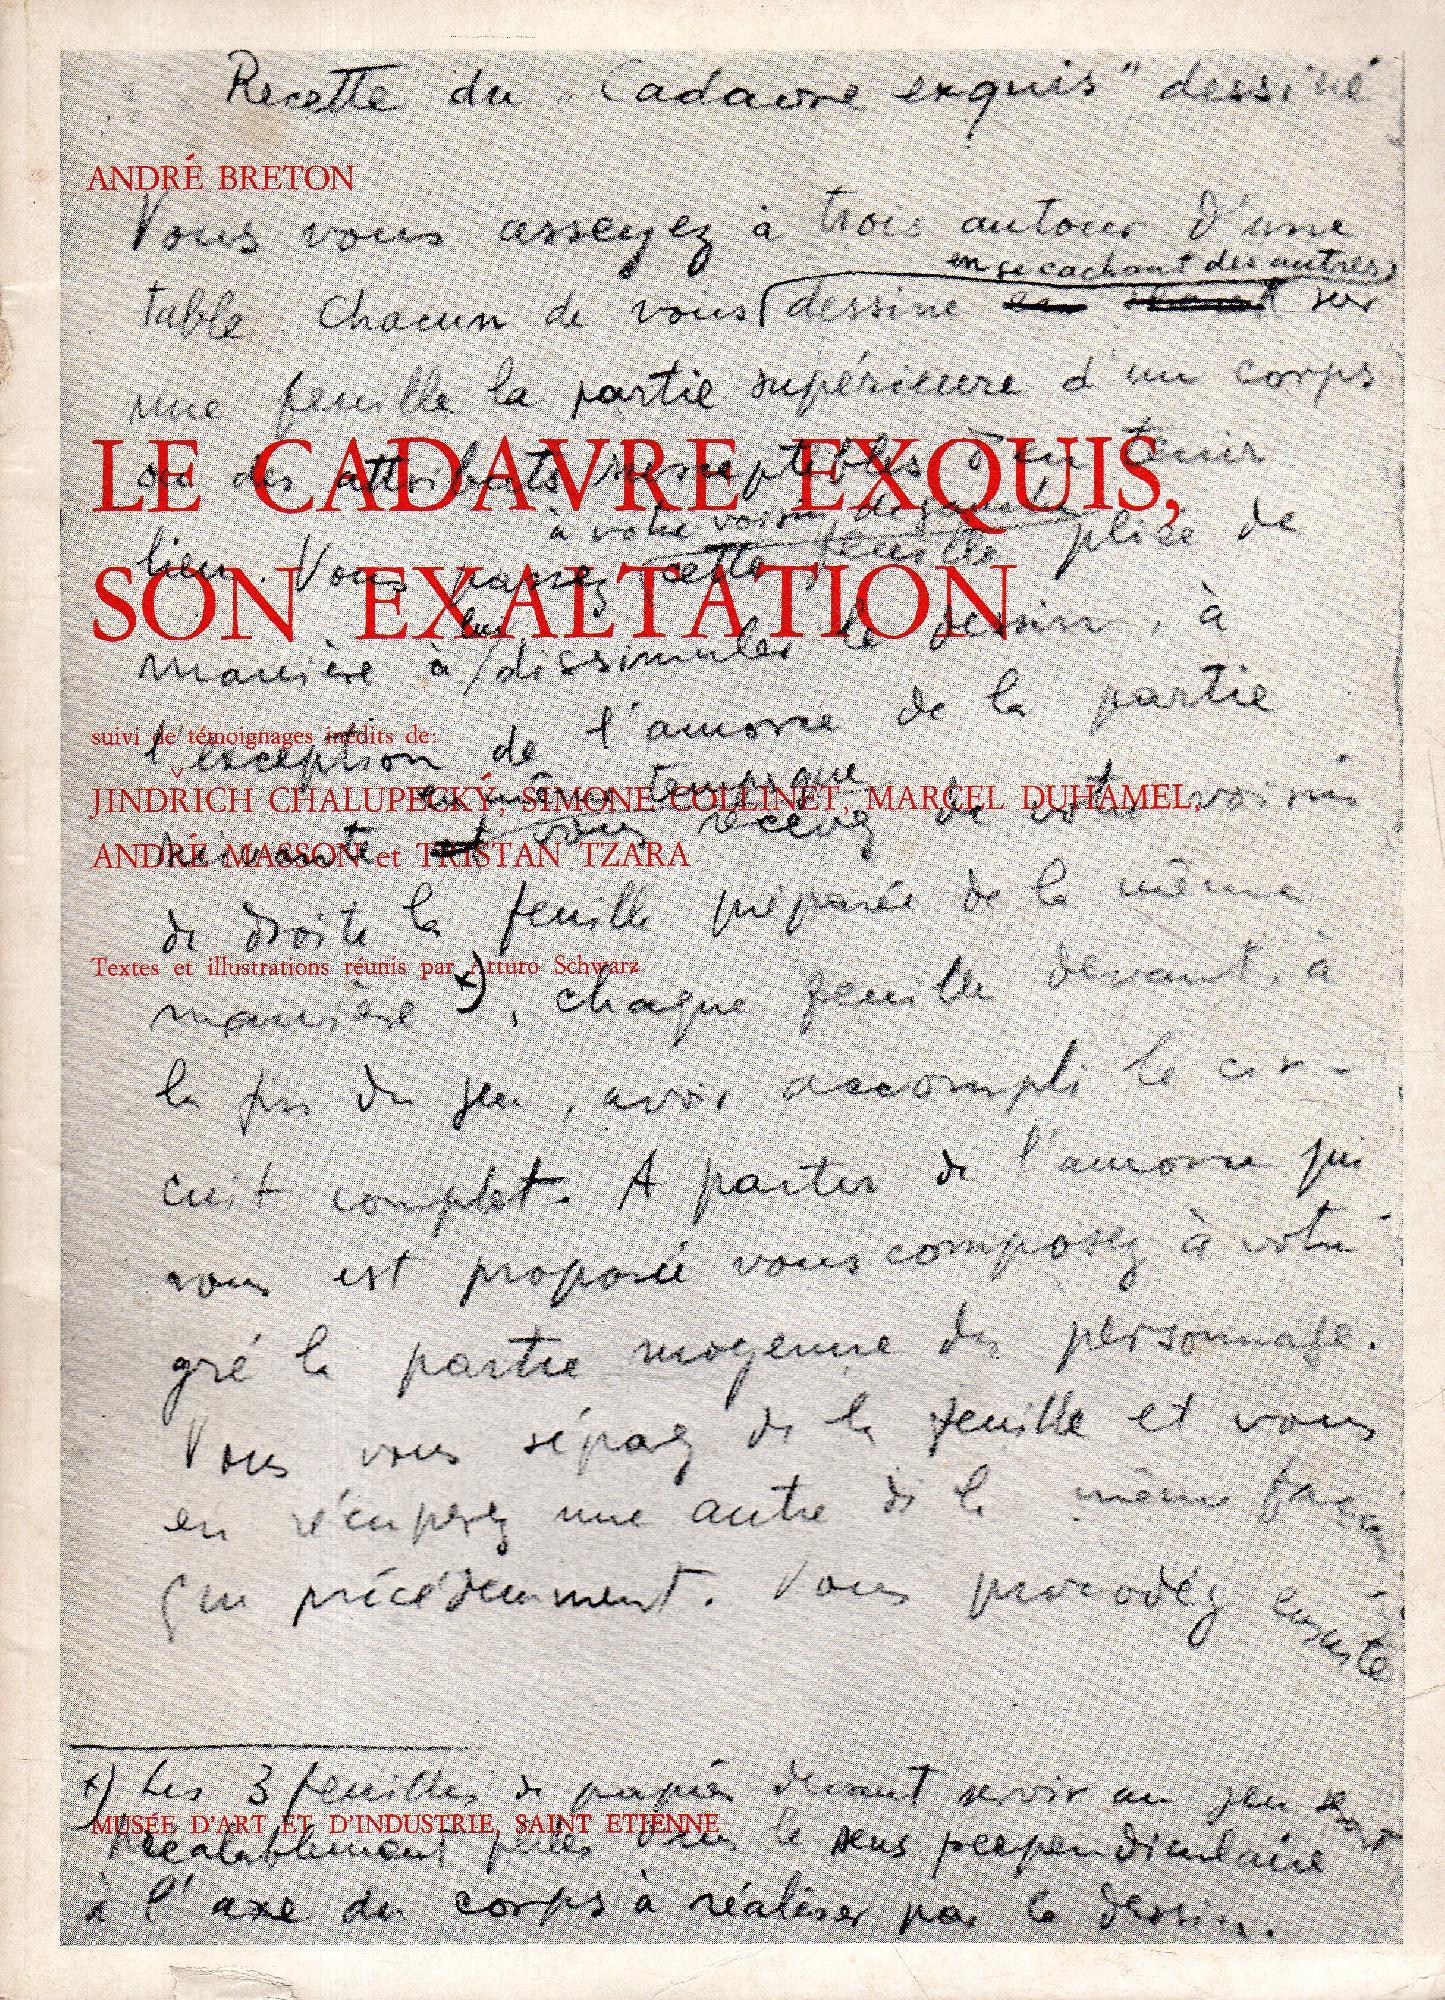 Recette du "Cadavre exquis" dessiné
ANDRÉ BRETON
Vous vous asseyez à trois autour d'une
en se cachant des autres,
table. Chacun de vous dessine sur
une feuille la partie supérieure d'un corps
LE CADAVRE EXQUIS,
ou des attributs susceptibles d'en tenir
à votre voisin de gauche
lieu. Vous passez cette feuille pliée de
SON EXALTATION
lui
manière à dissimuler le dessin, à
suivi de témoignages inédits de:
l'exception de l'amorce de la partie
JINDŘICH CHALUPECKÝ, SIMONE COLLINET, MARCEL DUHAMEL,
en même temps que
suivante vous recevez de votre voisin
ANDRÉ MASSON et TRISTAN TZARA
de droite la feuille préparée de la même
Textes et illustrations réunis par Arturo Schwarz
manière x), chaque feuille devant, à
la fin du jeu, avoir accompli le cir-
cuit complet. A partir de l'amorce qui
vous est proposée vous composez à votre
gré la partie moyenne du personnage.
Vous vous séparez de la feuille et vous
en récupérez une autre de la même façon
que précédemment. Vous procédez ensuite
x) Les 3 feuilles de papier devant servir au jeu sont
MUSÉE D'ART ET D'INDUSTRIE, SAINT ETIENNE
préalablement pliées dans le sens perpendiculaire
à l'axe du corps à réaliser par le dessin.